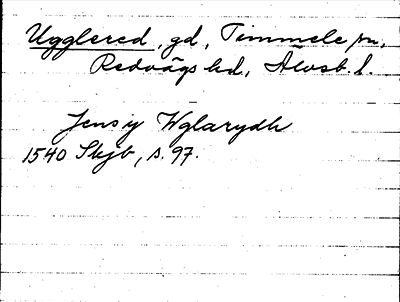 Ugglered, gd, Timmele sn,
Redvägs hd, Älvsb l.
Jens y Wglarydh
1540 Skjb, s. 97.